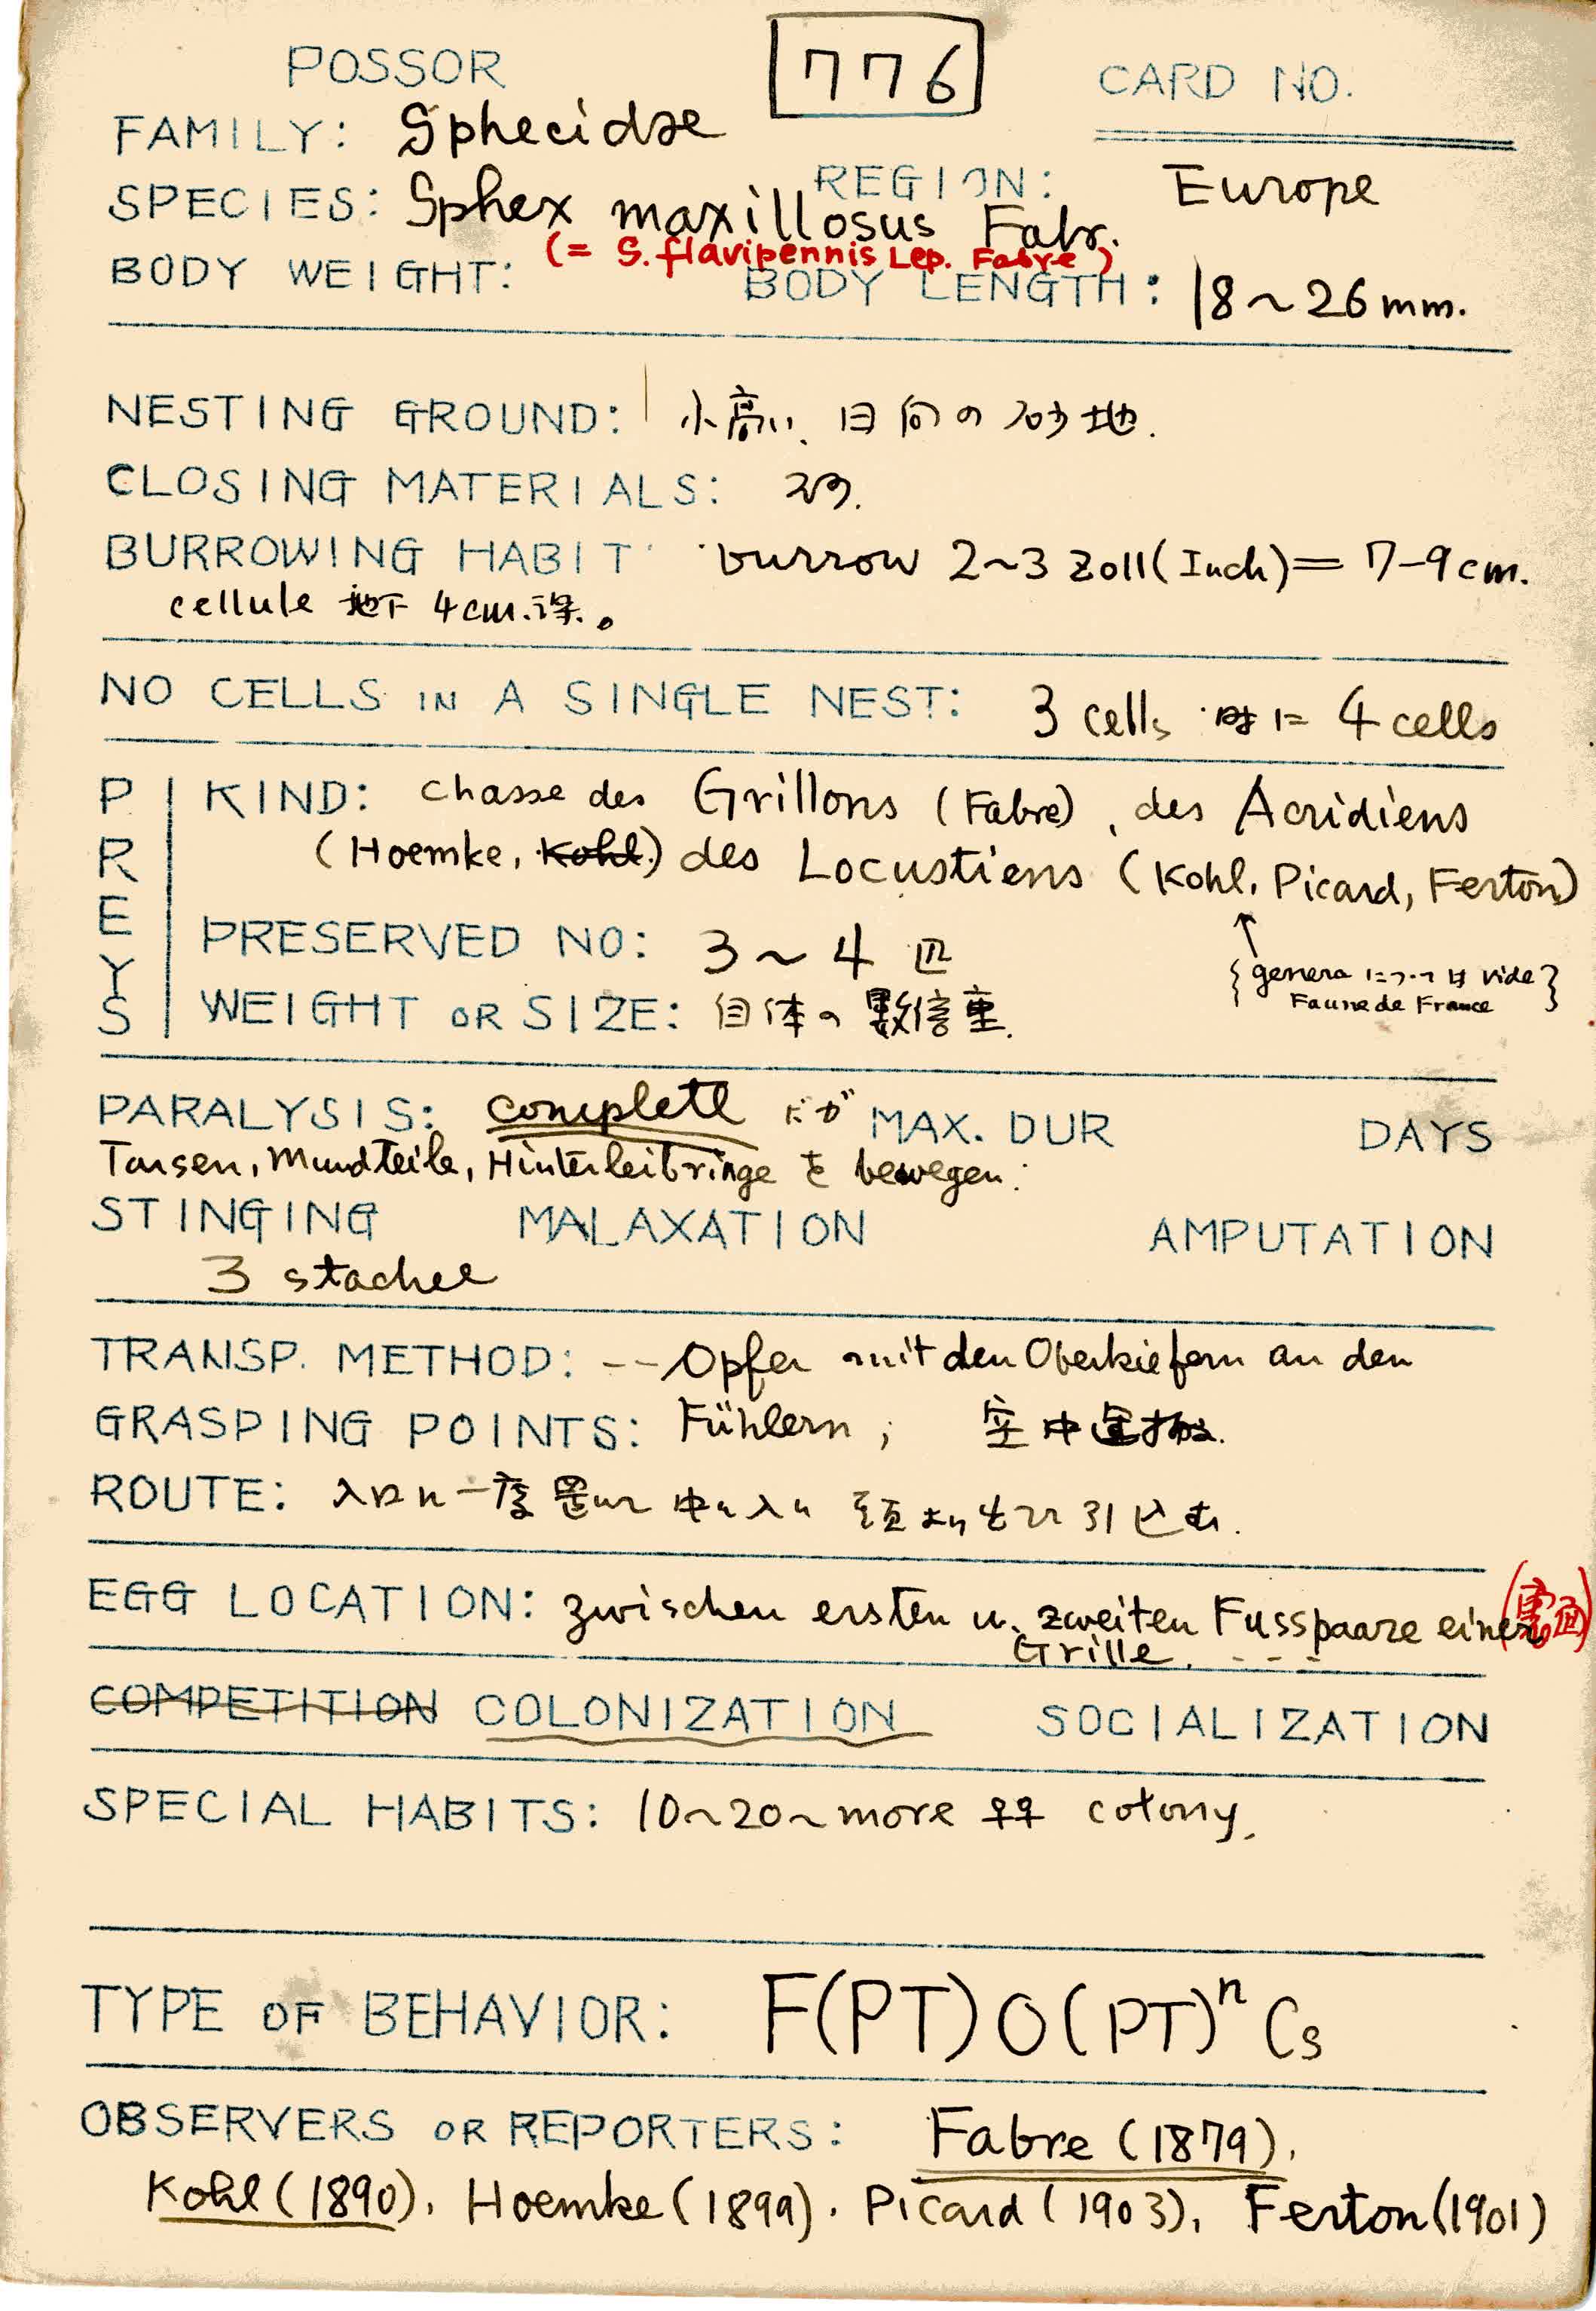 POSSOR 776 CARD NO.
FAMILY: Sphecidae
SPECIES: Sphex maxillosus Fabr. REGION: Europe
(= S. flavipennis Lep. Fabre)
BODY WEIGHT: BODY LENGTH: 18~26 mm.
NESTING GROUND: 小高い、日向の砂地.
CLOSING MATERIALS: 砂.
BURROWING HABIT burrow 2~3 Zoll (Inch) = 7-9cm.
cellule 地下 4cm.深。
NO CELLS IN A SINGLE NEST: 3 cells 時に 4 cells
PREYS
KIND: chasse des Grillons (Fabre), des Acridiens
(Hoemke, Kohl.) des Locustiens (Kohl, Picard, Ferton)
PRESERVED NO: 3~4 匹
{genera については vide
Faune de France}
WEIGHT OR SIZE: 自体の数倍重.
PARALYSIS: complete だが MAX. DUR DAYS
Tarsen, Mundteile, Hinterleibringe を bewegen.
STINGING MALAXATION AMPUTATION
3 stachel
TRANSP. METHOD: -- Opfer mit den Oberkiefern an den
GRASPING POINTS: Fühlern; 空中運搬.
ROUTE: 入口に一度置いて中に入り 頭より出て引込む.
EGG LOCATION: zwischen ersten u. zweiten Fusspaare einer
Grille. ---
COMPETITION COLONIZATION SOCIALIZATION
SPECIAL HABITS: 10~20~more ♀♀ colony.
TYPE OF BEHAVIOR: F(PT)O(PT)ⁿCs
OBSERVERS OR REPORTERS: Fabre (1879).
Kohl (1890). Hoemke (1899). Picard (1903), Ferton (1901)